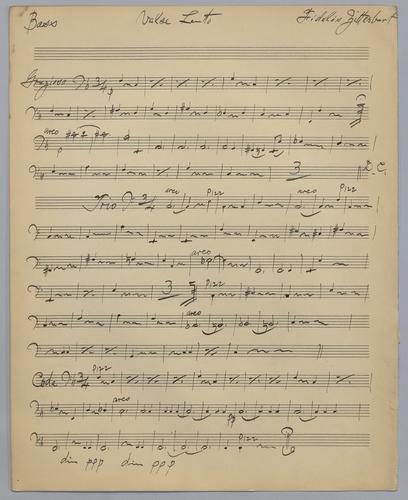 Bass Valse Lento Fidelis Zitterbart
Grazioso 3/4
arco
p
3 D.C.
Trio 3/4 arco Pizz arco Pizz
arco
3 Pizz
arco
Coda 3/4 Pizz
arco
pp
Pizz
dim ppp dim ppp